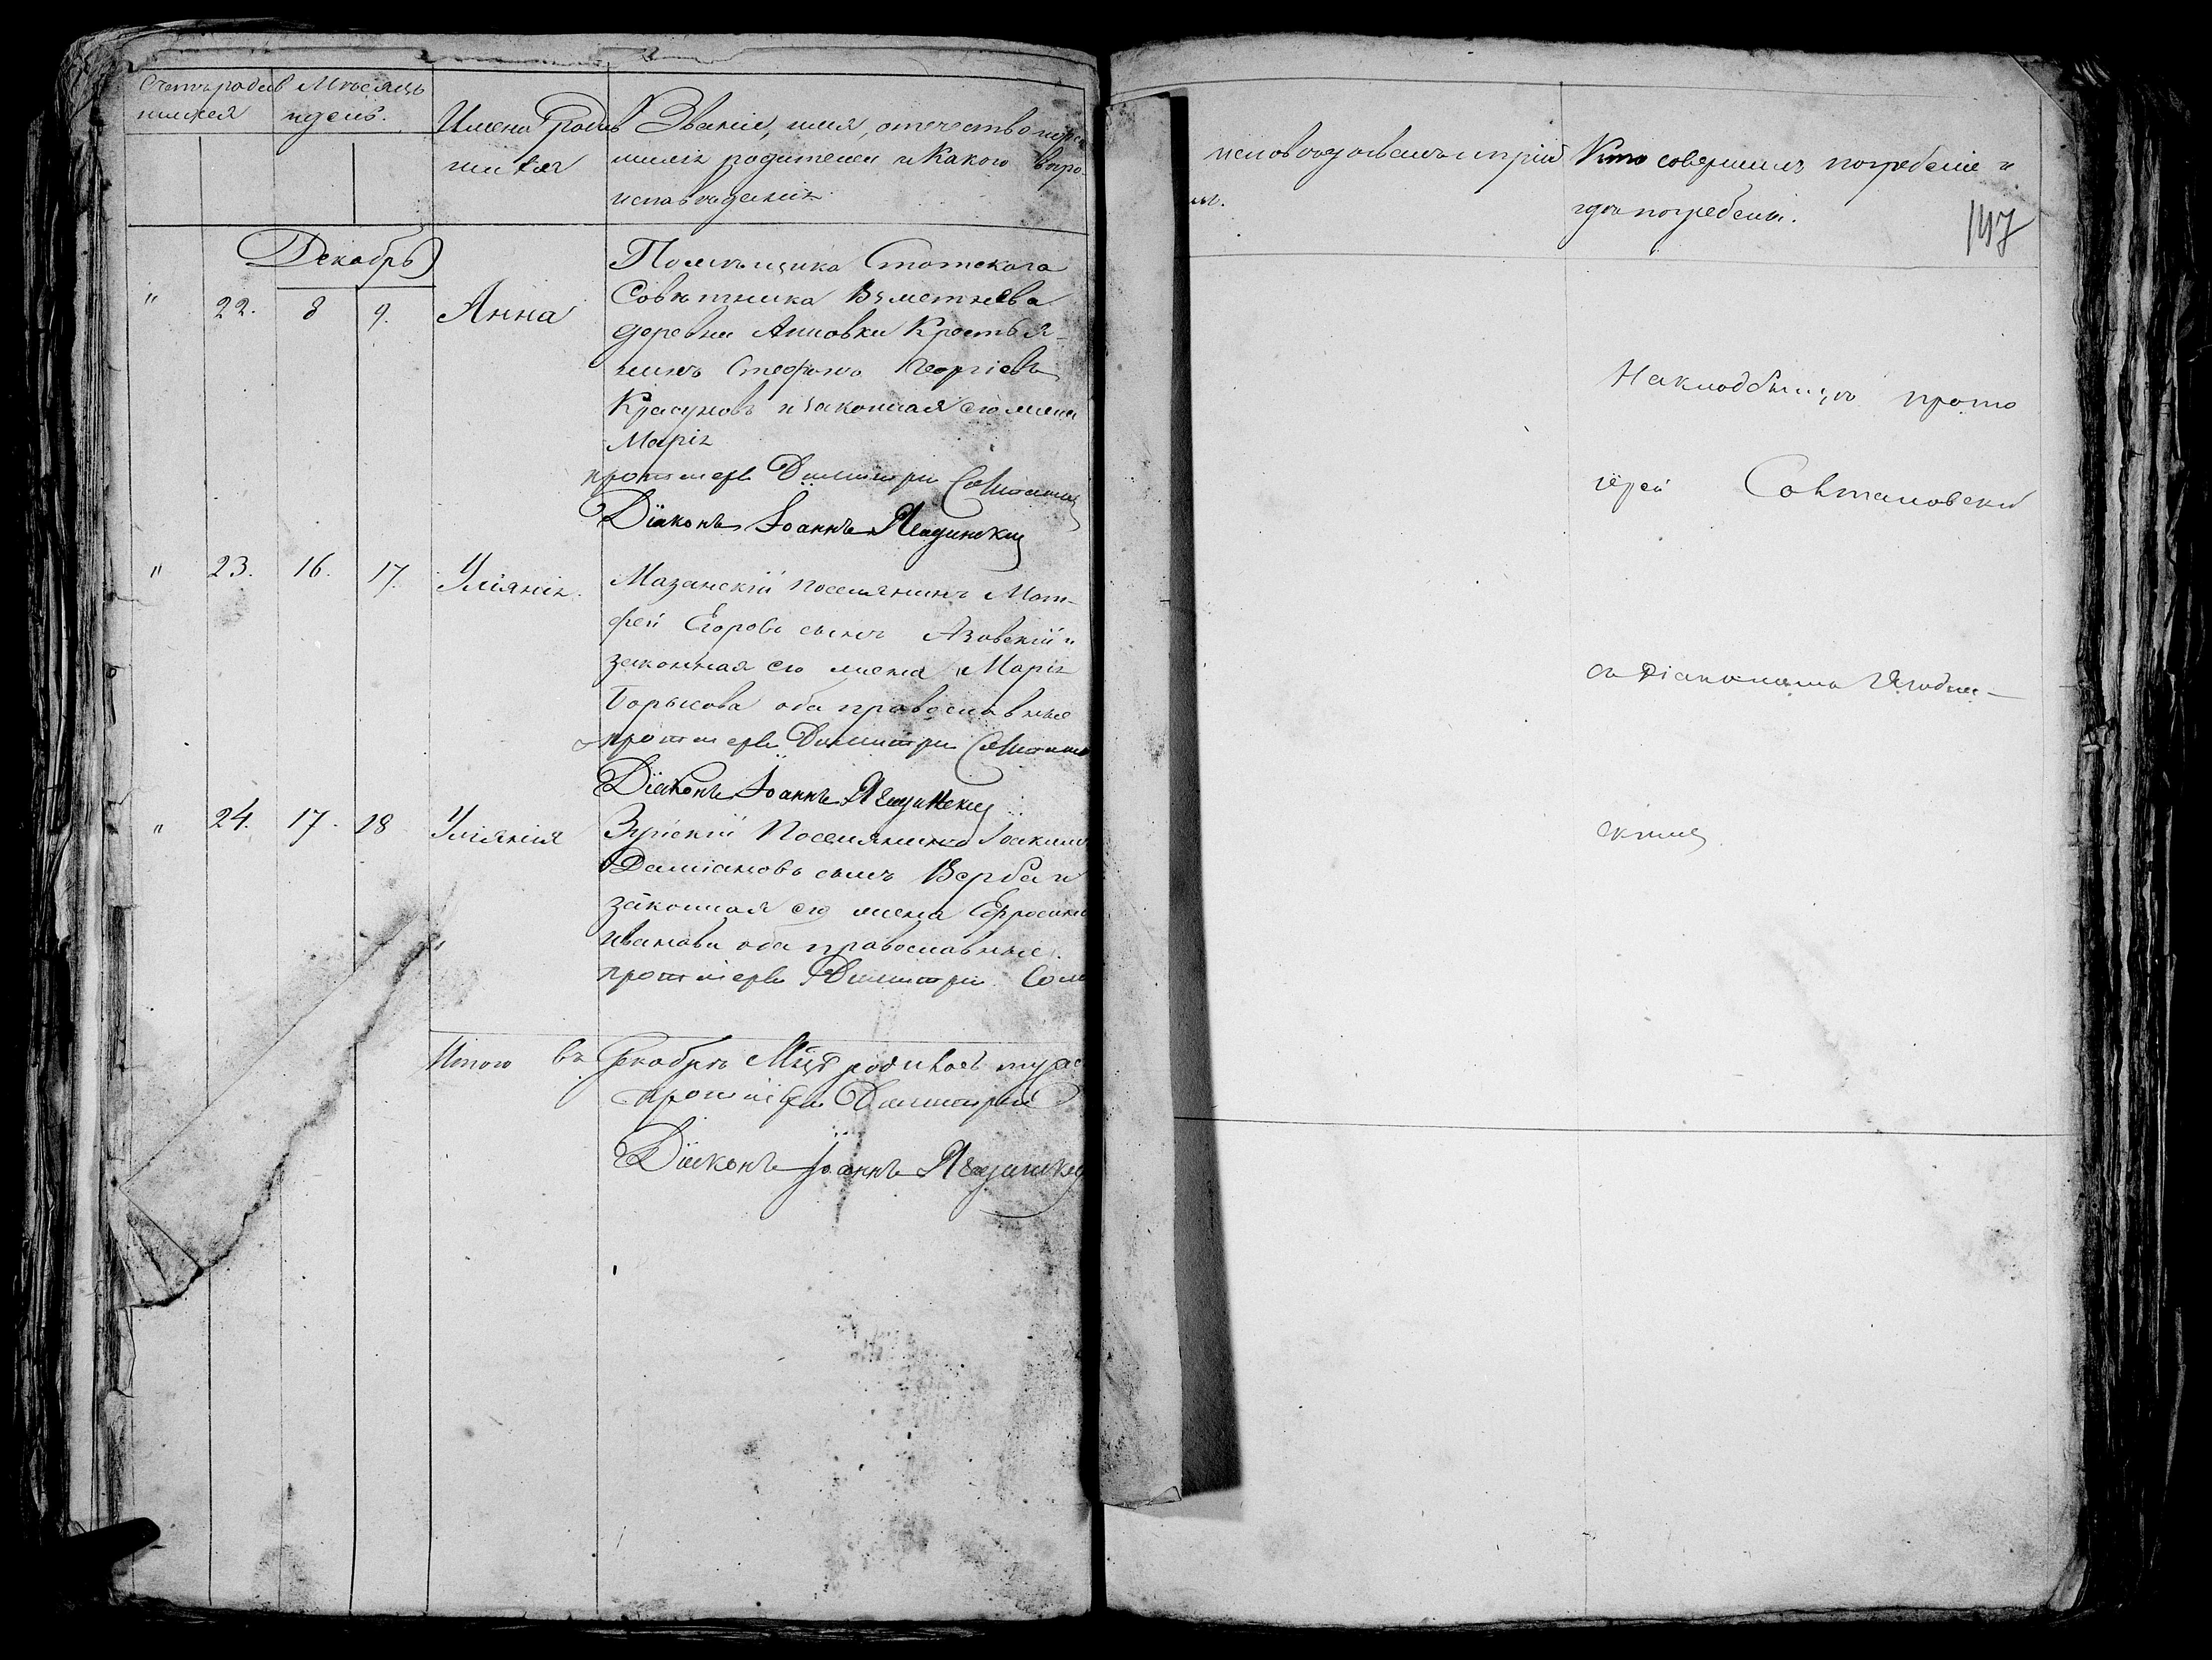 Счетъ родив Мѣсяцъ
шихся и день.
Имена Родив
шихся
Званіе, имя, отечество и фа
милія родителей и Какого вѣро
исповѣданія
Декабрь
" 22. 8 9. Анна
Помѣщика Статскаго
Совѣтника
деревни Анновки Крестья
нинъ Стефанъ Георгіевъ
Красуновъ и законная его жена
Марія
протоіерей Димитрій
Діаконъ Іоаннъ Ягодинскій
" 23. 16. 17. Уліянія.
Мазанскій поселянинъ Мат
фей Егоровъ сынъ Азовскій и
законная его жена Марія
Борисова оба православные
протоіерей Димитрій
Діаконъ Іоаннъ Ягодинскій
" 24. 17. 18 Уліянія
Зуйскій Поселянинъ Іоакимъ
Даміановъ сынъ Верба и
законная его жена Ефросинія
Иванова оба православные.
протоіерей Димитрій
Итого въ Декабрѣ Мцѣ родилось
протоіерей Димитрій
Діаконъ Іоаннъ Ягодинскій
исповѣдывалъ и прій
Кто совершилъ погребеніе и
гдѣ погребены.
147
На кладбищѣ прото
іерей Совтановскій
съ Діакономъ Ягодин
скимъ